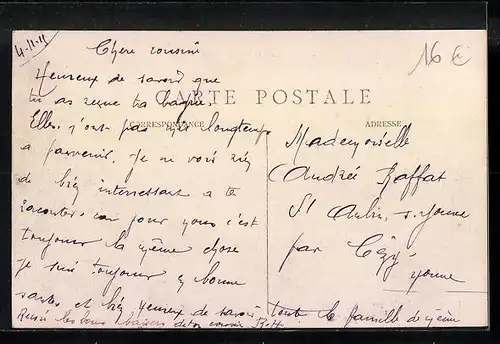 4-11-
16 €
CARTE POSTALE
CORRESPONDANCE
ADRESSE
Chère cousine
Heureux de savoir que
tu as reçue ta bague.
Elles n'ont pas mis longtemps
a parvenir. Je ne vois rien
de bien interressant a te
raconter car pour nous c'est
toujours la même chose
je suis toujours en bonne
santée et bien heureux de savoir
toute la famille de même
Reçois les bons baisers de ton cousin
Mademoiselle
Andrée Raffat
St Aubin s. Yonne
par Cézy
Yonne